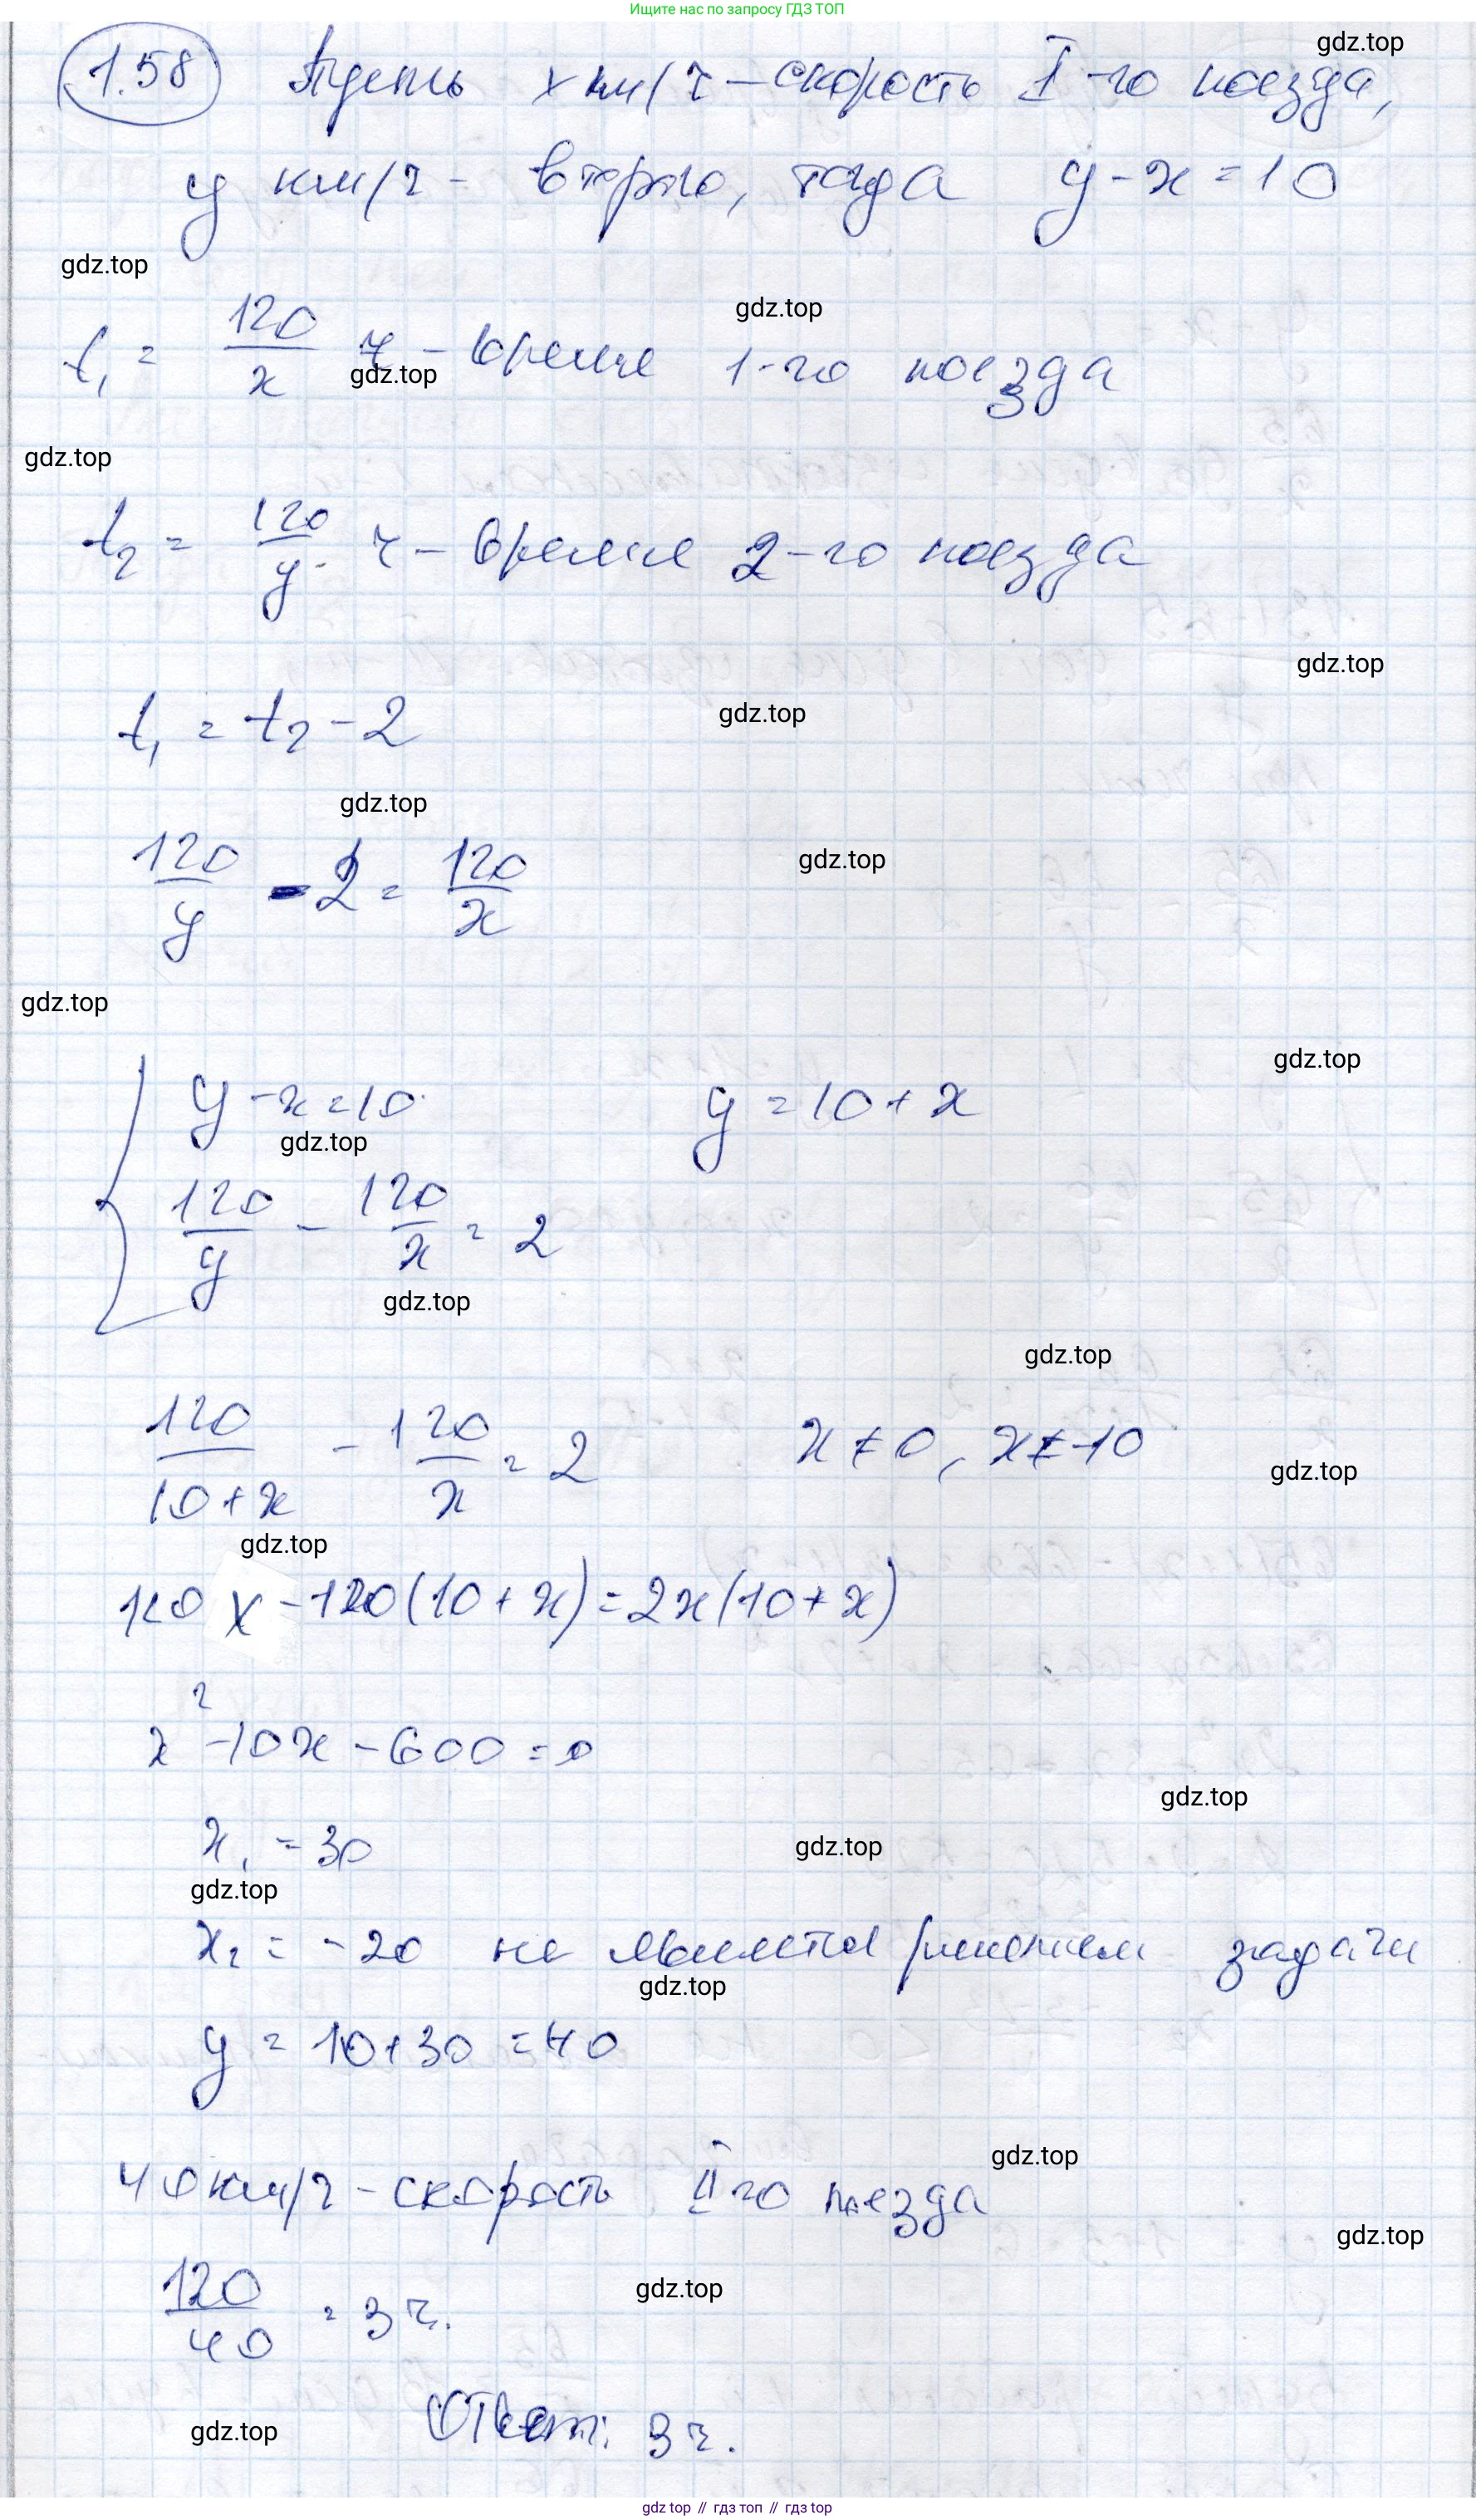 Ищите нас по запросу ГДЗ ТОП
gdz.top
1.58 Пусть x км/ч – скорость I-го поезда,
y км/ч – второго, тогда y - x = 10
gdz.top
gdz.top
t₁ = 120/x ч – время 1-го поезда
gdz.top
gdz.top
t₂ = 120/y ч – время 2-го поезда
gdz.top
t₁ = t₂ - 2
gdz.top
gdz.top
120/y - 2 = 120/x
gdz.top
gdz.top
gdz.top
{ y - x = 10 y = 10 + x
gdz.top
120/y - 120/x = 2
gdz.top
gdz.top
120/(10 + x) - 120/x = 2 x ≠ 0, x ≠ -10
gdz.top
gdz.top
120 x - 120(10 + x) = 2x(10 + x)
x² - 10x - 600 = 0
gdz.top
x₁ = 30
gdz.top
gdz.top
x₂ = -20 не является решением задачи
gdz.top
y = 10 + 30 = 40
gdz.top
40 км/ч – скорость II го поезда
gdz.top
120/40 = 3 ч.
gdz.top
Ответ: 3 ч.
gdz.top
gdz top // гдз топ // gdz top